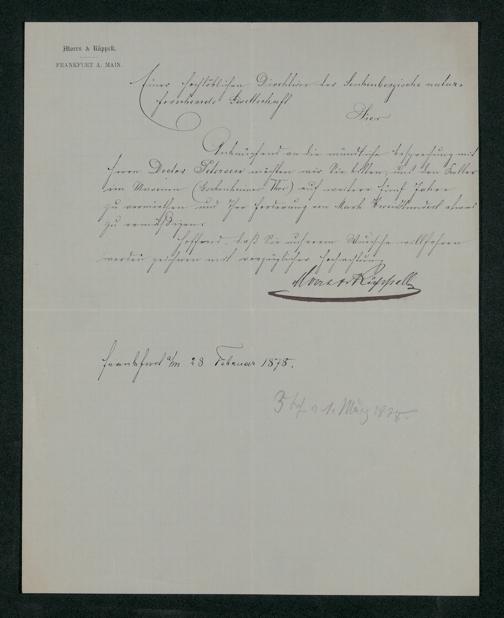 Moers & Rüppell.
FRANKFURT A. MAIN.
Einer hochlöblichen Direktion der Senkenbergische natur-
forschende Gesellschaft
Hier
Anknüpfend an die mündliche Besprechung mit
Herrn Doctor Petersen möchten wir Sie bitten, uns den Keller
im Museum (Eschenheimer Thor) auf weitere fünf Jahre
zu vermiethen und Ihre Forderung von Mark etwas
zu ermäßigen.
Hoffend, daß Sie unserem Wunsche willfahren
werden zeichnen mit vorzüglicher Hochachtung
Moers & Rüppell
Frankfurt a/m 28 Februar 1878.
1. März 1878.